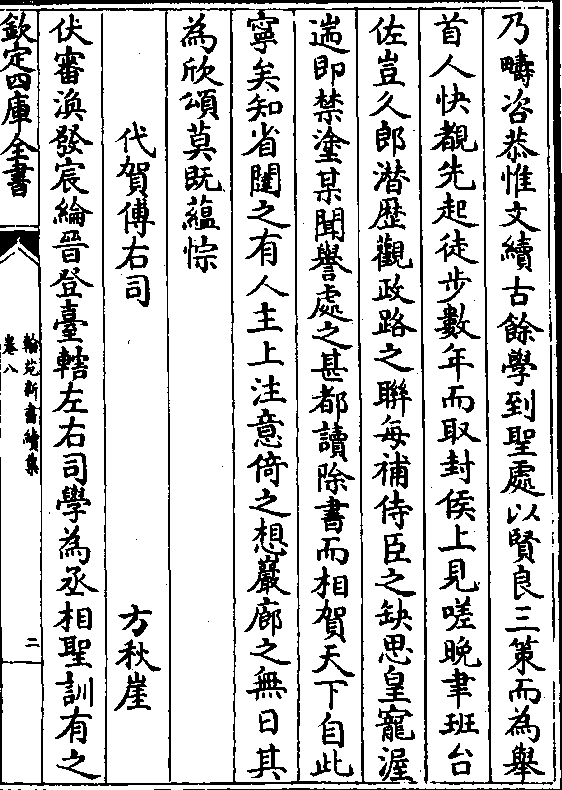 乃疇咨恭惟文續古餘學到聖處以賢良三策而為舉
首人快覩先起徒步數年而取封侯上見嗟晚聿班台
佐豈久郎潛歷觀政路之聯每補侍臣之缺思皇寵渥
遄即禁塗某聞譽處之甚都讀除書而相賀天下自此
寧矣知省闥之有人主上注意倚之想巖廊之無日其
為欣頌莫既蘊悰
代賀傅右司
方秋崖
伏審渙發宸綸晉登臺轄左右司學為丞相聖訓有之
欽定四庫全書
翰苑新書續集
卷八
二